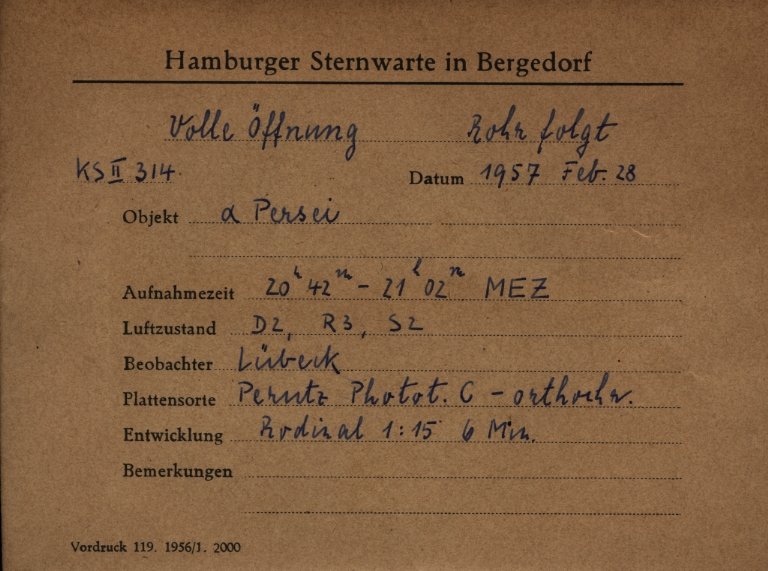 Hamburger Sternwarte in Bergedorf
Volle Öffnung Rohr folgt
KS II 314 Datum 1957 Feb. 28
Objekt α Persei
Aufnahmezeit 20ʰ 42ᵐ - 21ʰ 02ᵐ MEZ
Luftzustand D2, R3, S2
Beobachter Lübeck
Plattensorte Perutz Photot. C - orthochr.
Entwicklung Rodinal 1:15 6 Min.
Bemerkungen
Vordruck 119. 1956/1. 2000